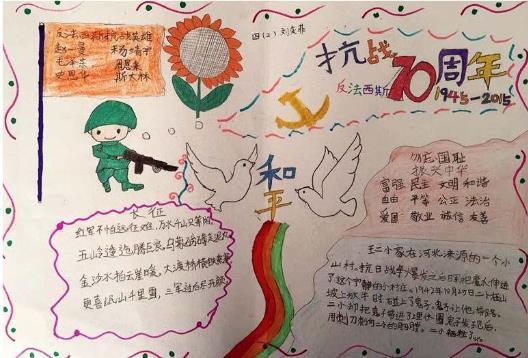 反法西斯抗战英雄
赵一曼 杨靖宇
毛泽东 周恩来
史思华 斯大林
四(2)
抗战70周年
反法西斯
1945-2015
和平
勿忘国耻
振兴中华
富强 民主 文明 和谐
自由 平等 公正 法治
爱国 敬业 诚信 友善
长征
红军不怕远征难,万水千山只等闲
五岭逶迤腾细浪,乌蒙磅礴走泥丸
金沙水拍云崖暖,大渡桥横铁索寒
更喜岷山千里雪,三军过后尽开颜
王二小家在河北涞源的一个小
山村。抗日战争爆发之后
了这个宁静的小村庄。1942年10月25日
坡上放牛时
二小却把鬼子带进了
用刺刀刺向二小的胸膛,二小牺牲了